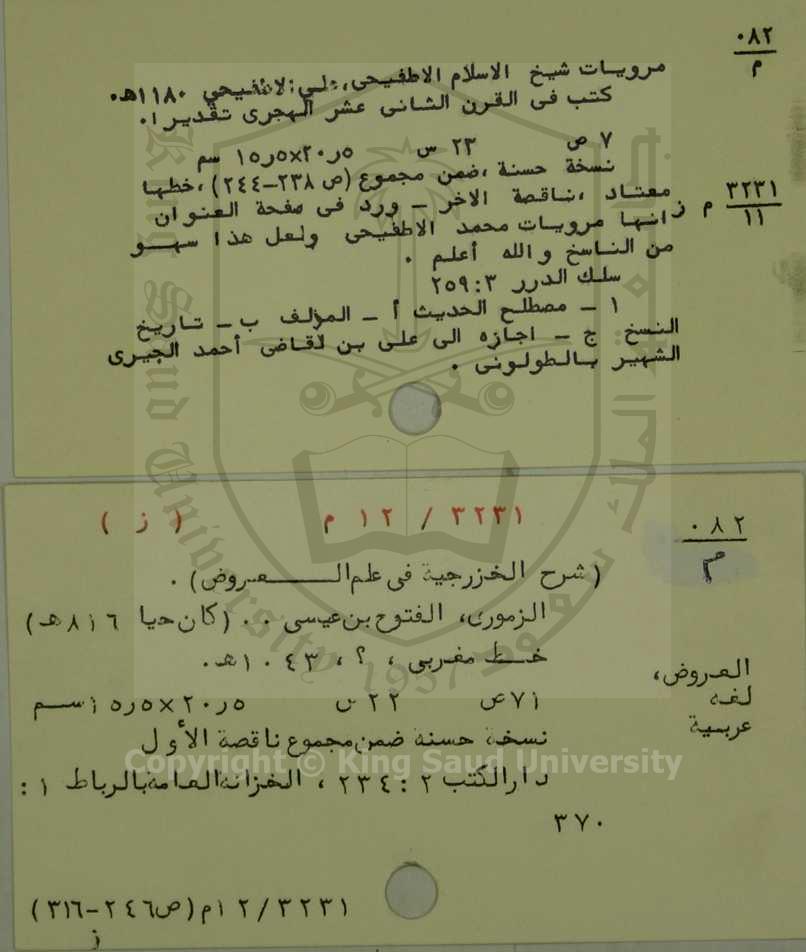 ٠٨٢
م
مرويات شيخ الاسلام الاطفيحى، علي الاطفيحي ١١٨٠هـ.
كتب فى القرن الثانى عشر الهجرى تقديرا.
٧ ص ٢٣ س ٢٠٫٥×١٥٫٥ سم
نسخة حسنة ،ضمن مجموع (ص ٢٣٨-٢٤٤) ،خطها
معتاد ،ناقصة الاخر _ ورد فى صفحة العنوان
٣٢٣١
١١ م ز
انها مرويات محمد الاطفيحى ولعل هذا سهو
من الناسخ والله أعلم .
سلك الدرر ٣:٢٥٩
١ _ مصطلح الحديث أ _ المؤلف ب _ تاريخ
النسخ ج _ اجازه الى على بن لقاضى أحمد الجيرى
الشهير بالطولونى .
٣٢٣١ / ١٢ م ( ز )
٠٨٢
م
(شرح الخزرجية فى علم العروض) .
الزمورى، الفتوح بن عيسى . . (كان حيا ٨١٦هـ)
خط مغربى ، ؟ ، ١٠٤٣هـ.
٧١ص ٢٢ س ٢٠٫٥×١٥٫٥ سم
نسخة حسنة ضمن مجموع ناقصة الأول
دار الكتب ٢ : ٢٣٤ ، الخزانة العامة بالرباط ١ :
٣٧٠
العروض،
لغة
عربية
٣٢٣١/١٢م (ص٢٤٦-٣١٦)
ز
Copyright © King Saud University
King Saud University
1957